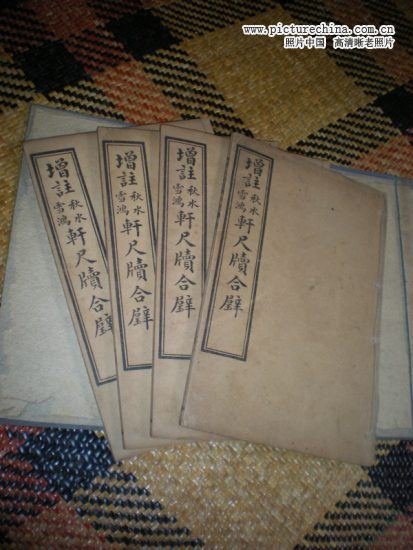 www.picturechina.com.cn
照片中国 高清晰老照片
增註秋水雪鴻軒尺牘合璧
增註秋水雪鴻軒尺牘合璧
增註秋水雪鴻軒尺牘合璧
增註秋水雪鴻軒尺牘合璧